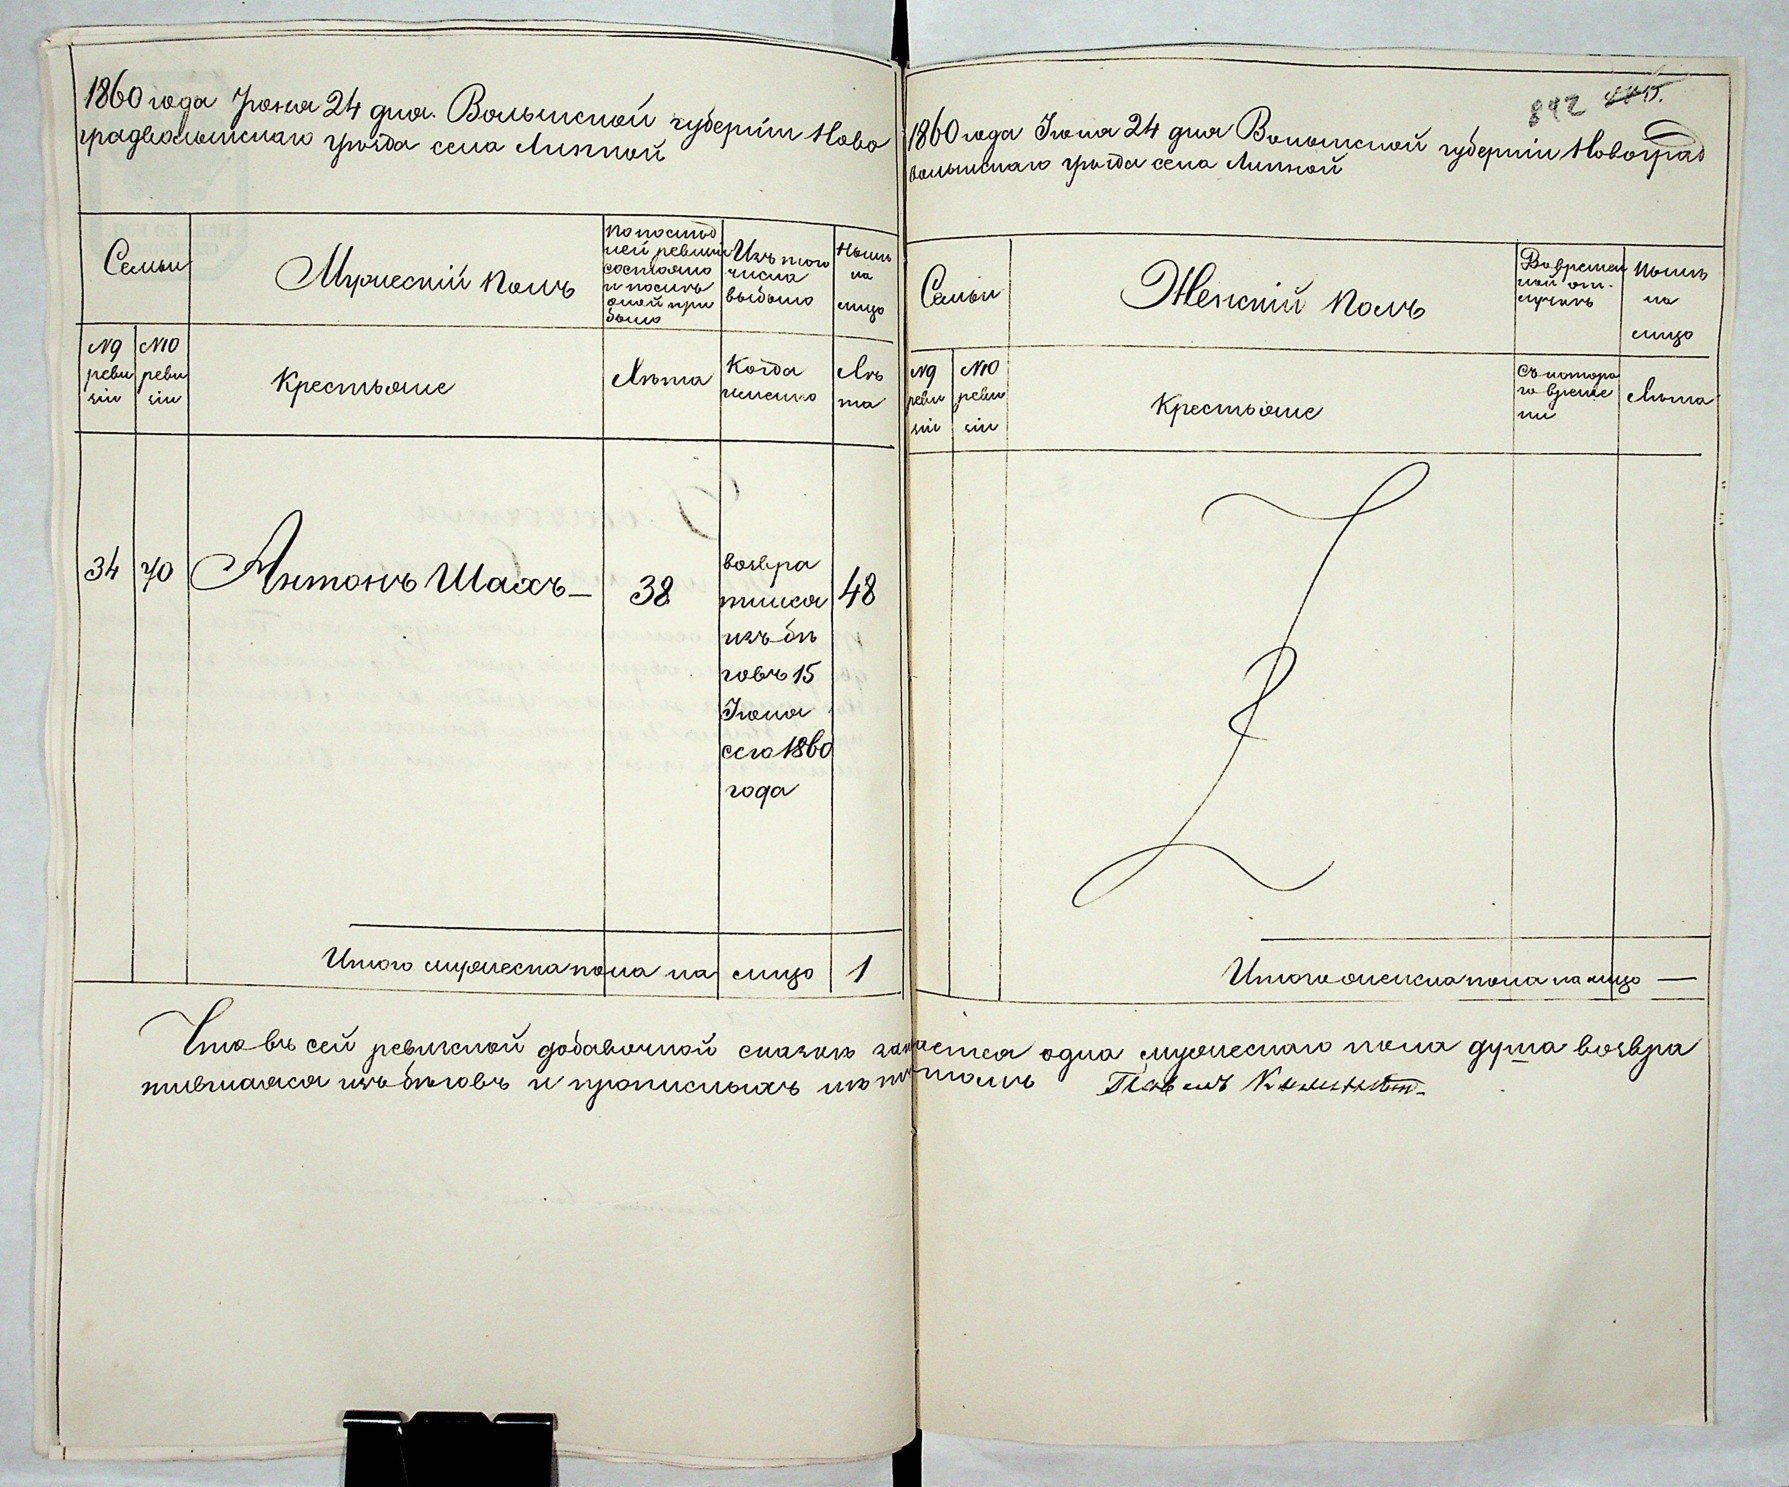 1860 года Іюня 24 дня. Волынской губерніи Ново
градволынскаго уѣзда села Липной
Семьи
Мужескій полъ
По послѣд
ней ревизіи
состояло
и послѣ
оной при
было
Изъ того
числа
выбыло
Нынѣ
на
лицо
№9
реви
зіи
№10
реви
зіи
Крестьяне
Лѣта
Когда
именно
Лѣ
та
34 70 Антонъ Шахъ 38 48
возвра
тился
изъ бѣ
говъ 15
Іюня
сего 1860
года
Итого мужеска пола на лицо 1
892
1860 года Іюня 24 дня Волынской губерніи Новоград
волынскаго уѣзда села Липной
Семьи
Женскій полъ
Во времен
ной от-
лучкѣ
Нынѣ
на
лицо
№9
реви
зіи
№10
реви
зіи
Крестьяне
Съ котора
го време
ни
Лѣта
Итого женска пола на лицо —
Что въ сей ревизской добавочной сказкѣ значится одна мужескаго пола душа возвра
тившаяся изъ бѣговъ и прописныхъ Павелъ